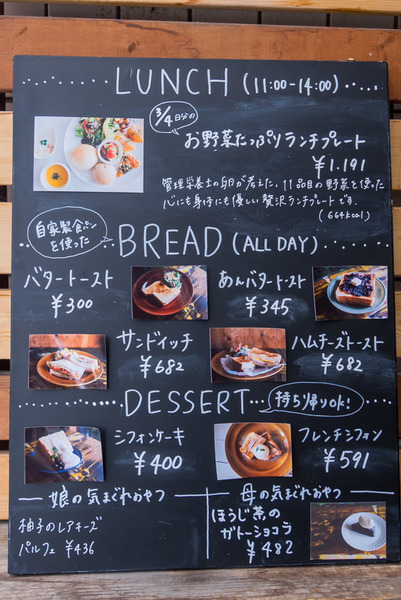 LUNCH (11:00-14:00)
3/4日分の
お野菜たっぷりランチプレート
¥1.191
管理栄養士の卵が考えた、11品目の野菜を使った
心にも身体にも優しい贅沢ランチプレートです。
(664kcal)
自家製食パン
を使った
BREAD (ALL DAY)
バタートースト
¥300
あんバタートースト
¥345
サンドイッチ
¥682
ハムチーズトースト
¥682
DESSERT
持ち帰りOK!
シフォンケーキ
¥400
フレンチシフォン
¥591
娘の気まぐれおやつ
柚子のレアチーズ
パルフェ ¥436
母の気まぐれおやつ
ほうじ茶の
ガトーショコラ
¥482